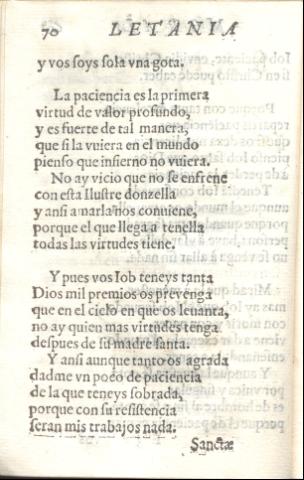 70 LETANIA
y vos soys sola vna gota.
La paciencia es la primera
virtud de valor profundo,
y es fuerte de tal manera,
que si la vuiera en el mundo
pienso que infierno no vuiera.
No ay vicio que no se enfrene
con esta Ilustre donzella
y ansi amarla nos conuiene,
porque el que llega a tenella
todas las virtudes tiene.
Y pues vos Iob teneys tanta
Dios mil premios os preuenga
que en el cielo en que os leuanta,
no ay quien mas virtudes tenga
despues de su madre santa.
Y ansi aunque tanto os agrada
dadme vn poco de paciencia
de la que teneys sobrada,
porque con su resistencia
seran mis trabajos nada.
Sanctæ